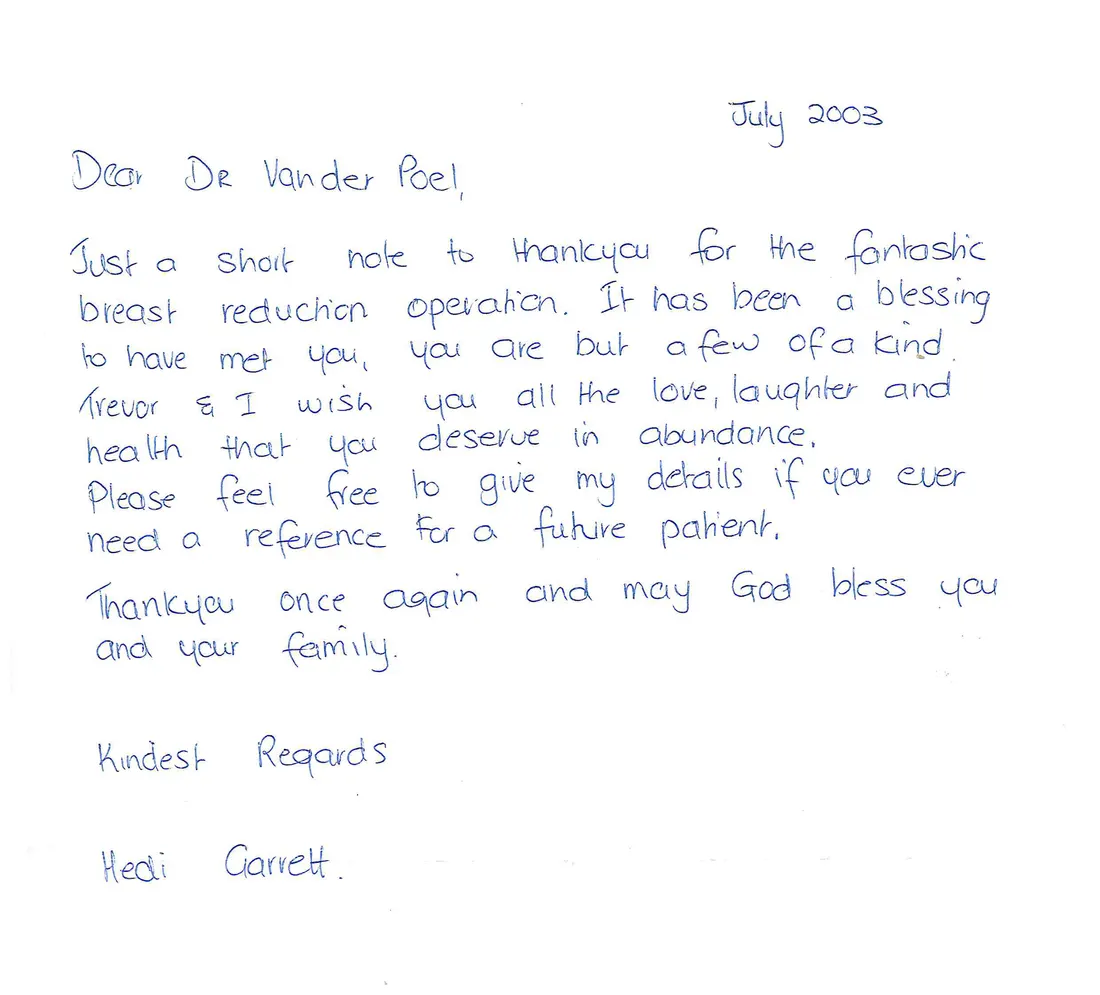 July 2003
Dear DR Vander Poel,
Just a short note to thankyou for the fantastic
breast reduction operation. It has been a blessing
to have met you, you are but a few of a kind.
Trevor & I wish you all the love, laughter and
health that you deserve in abundance.
Please feel free to give my details if you ever
need a reference for a future patient.
Thankyou once again and may God bless you
and your family.
Kindest Regards
Hedi Garrett.